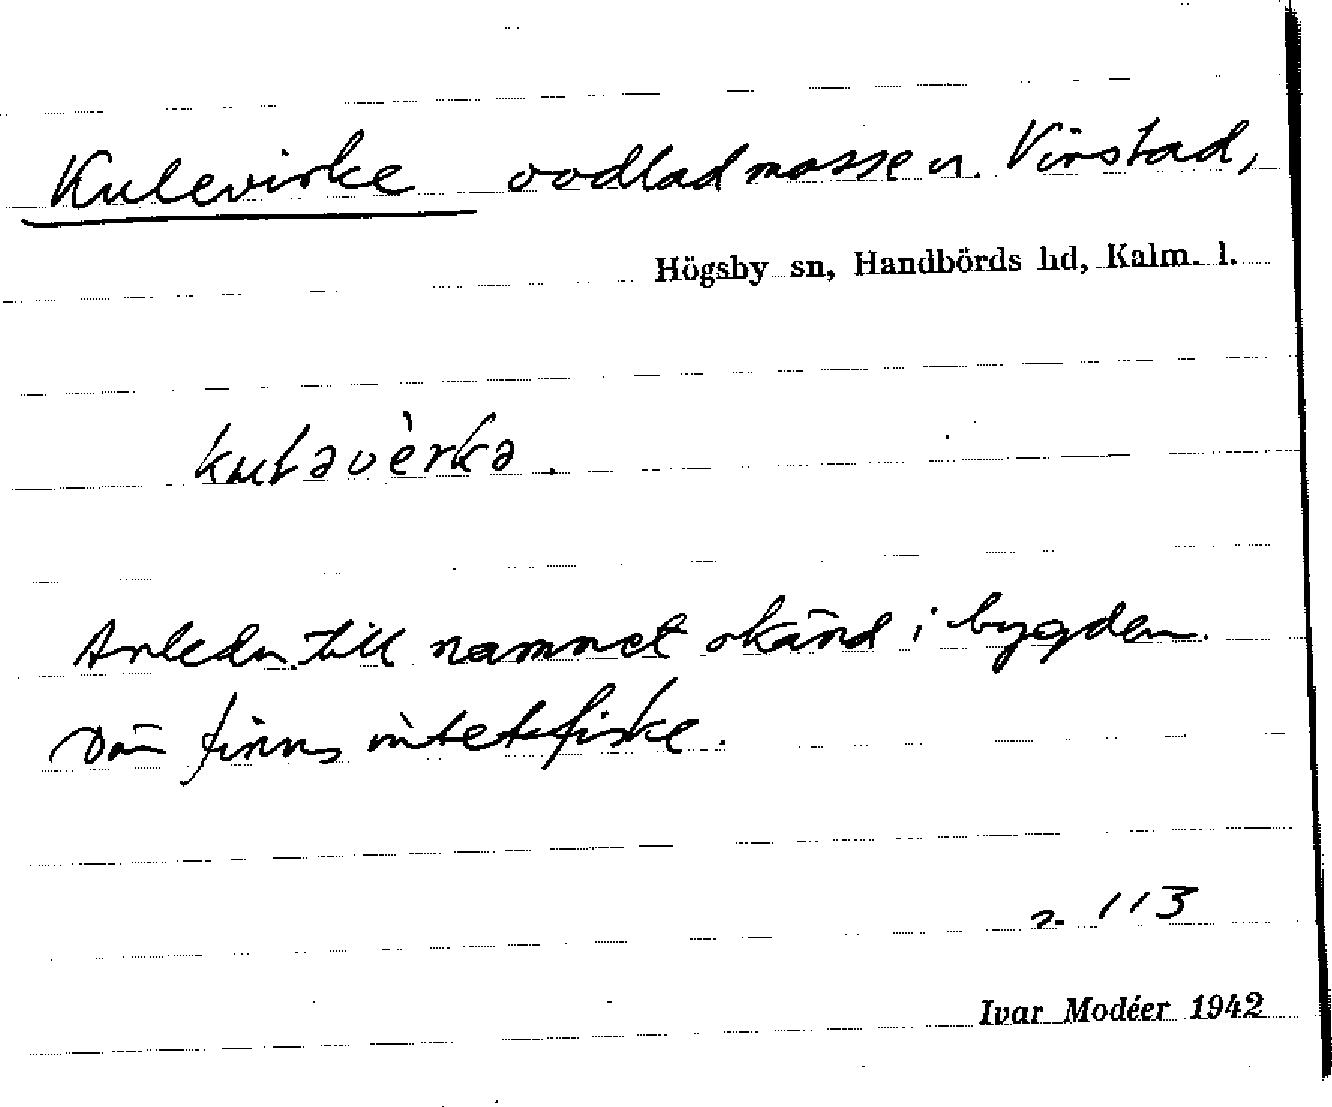 Kulevirke oodlad mosse n. Virstad,
Högsby sn, Handbörds hd, Kalm. l.
kuləvèrkə.
Anledn. till namnet okänd i bygden.
Där finns intet fiske.
2. 113
Ivar Modéer 1942